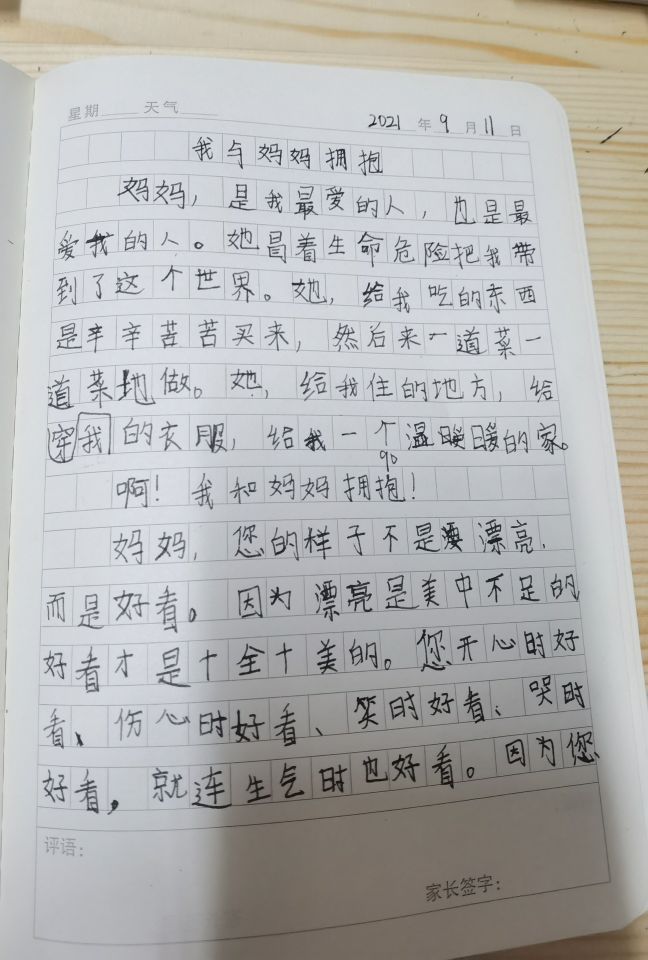 星期 天气 2021 年 9 月 11 日
我与妈妈拥抱
妈妈，是我最爱的人，也是最
爱我的人。她冒着生命危险把我带
到了这个世界。她，给我吃的东西
是辛辛苦苦买来，然后来一道菜一
道菜地做。她，给我住的地方，给
穿我的衣服，给我一个温暖暖的家。
90
啊！我和妈妈拥抱！
妈妈，您的样子不是漂亮，
而是好看。因为漂亮是美中不足的
好看才是十全十美的。您开心时好
看、伤心时好看、笑时好看、哭时
好看，就连生气时也好看。因为您
评语：
家长签字：